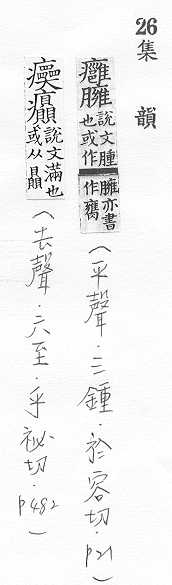 26集韻
癰臃說文腫也或作臃亦書作
(平聲．三鍾．於容切．P21)
說文滿也或从
(去聲．六至．乎祕切．P482)